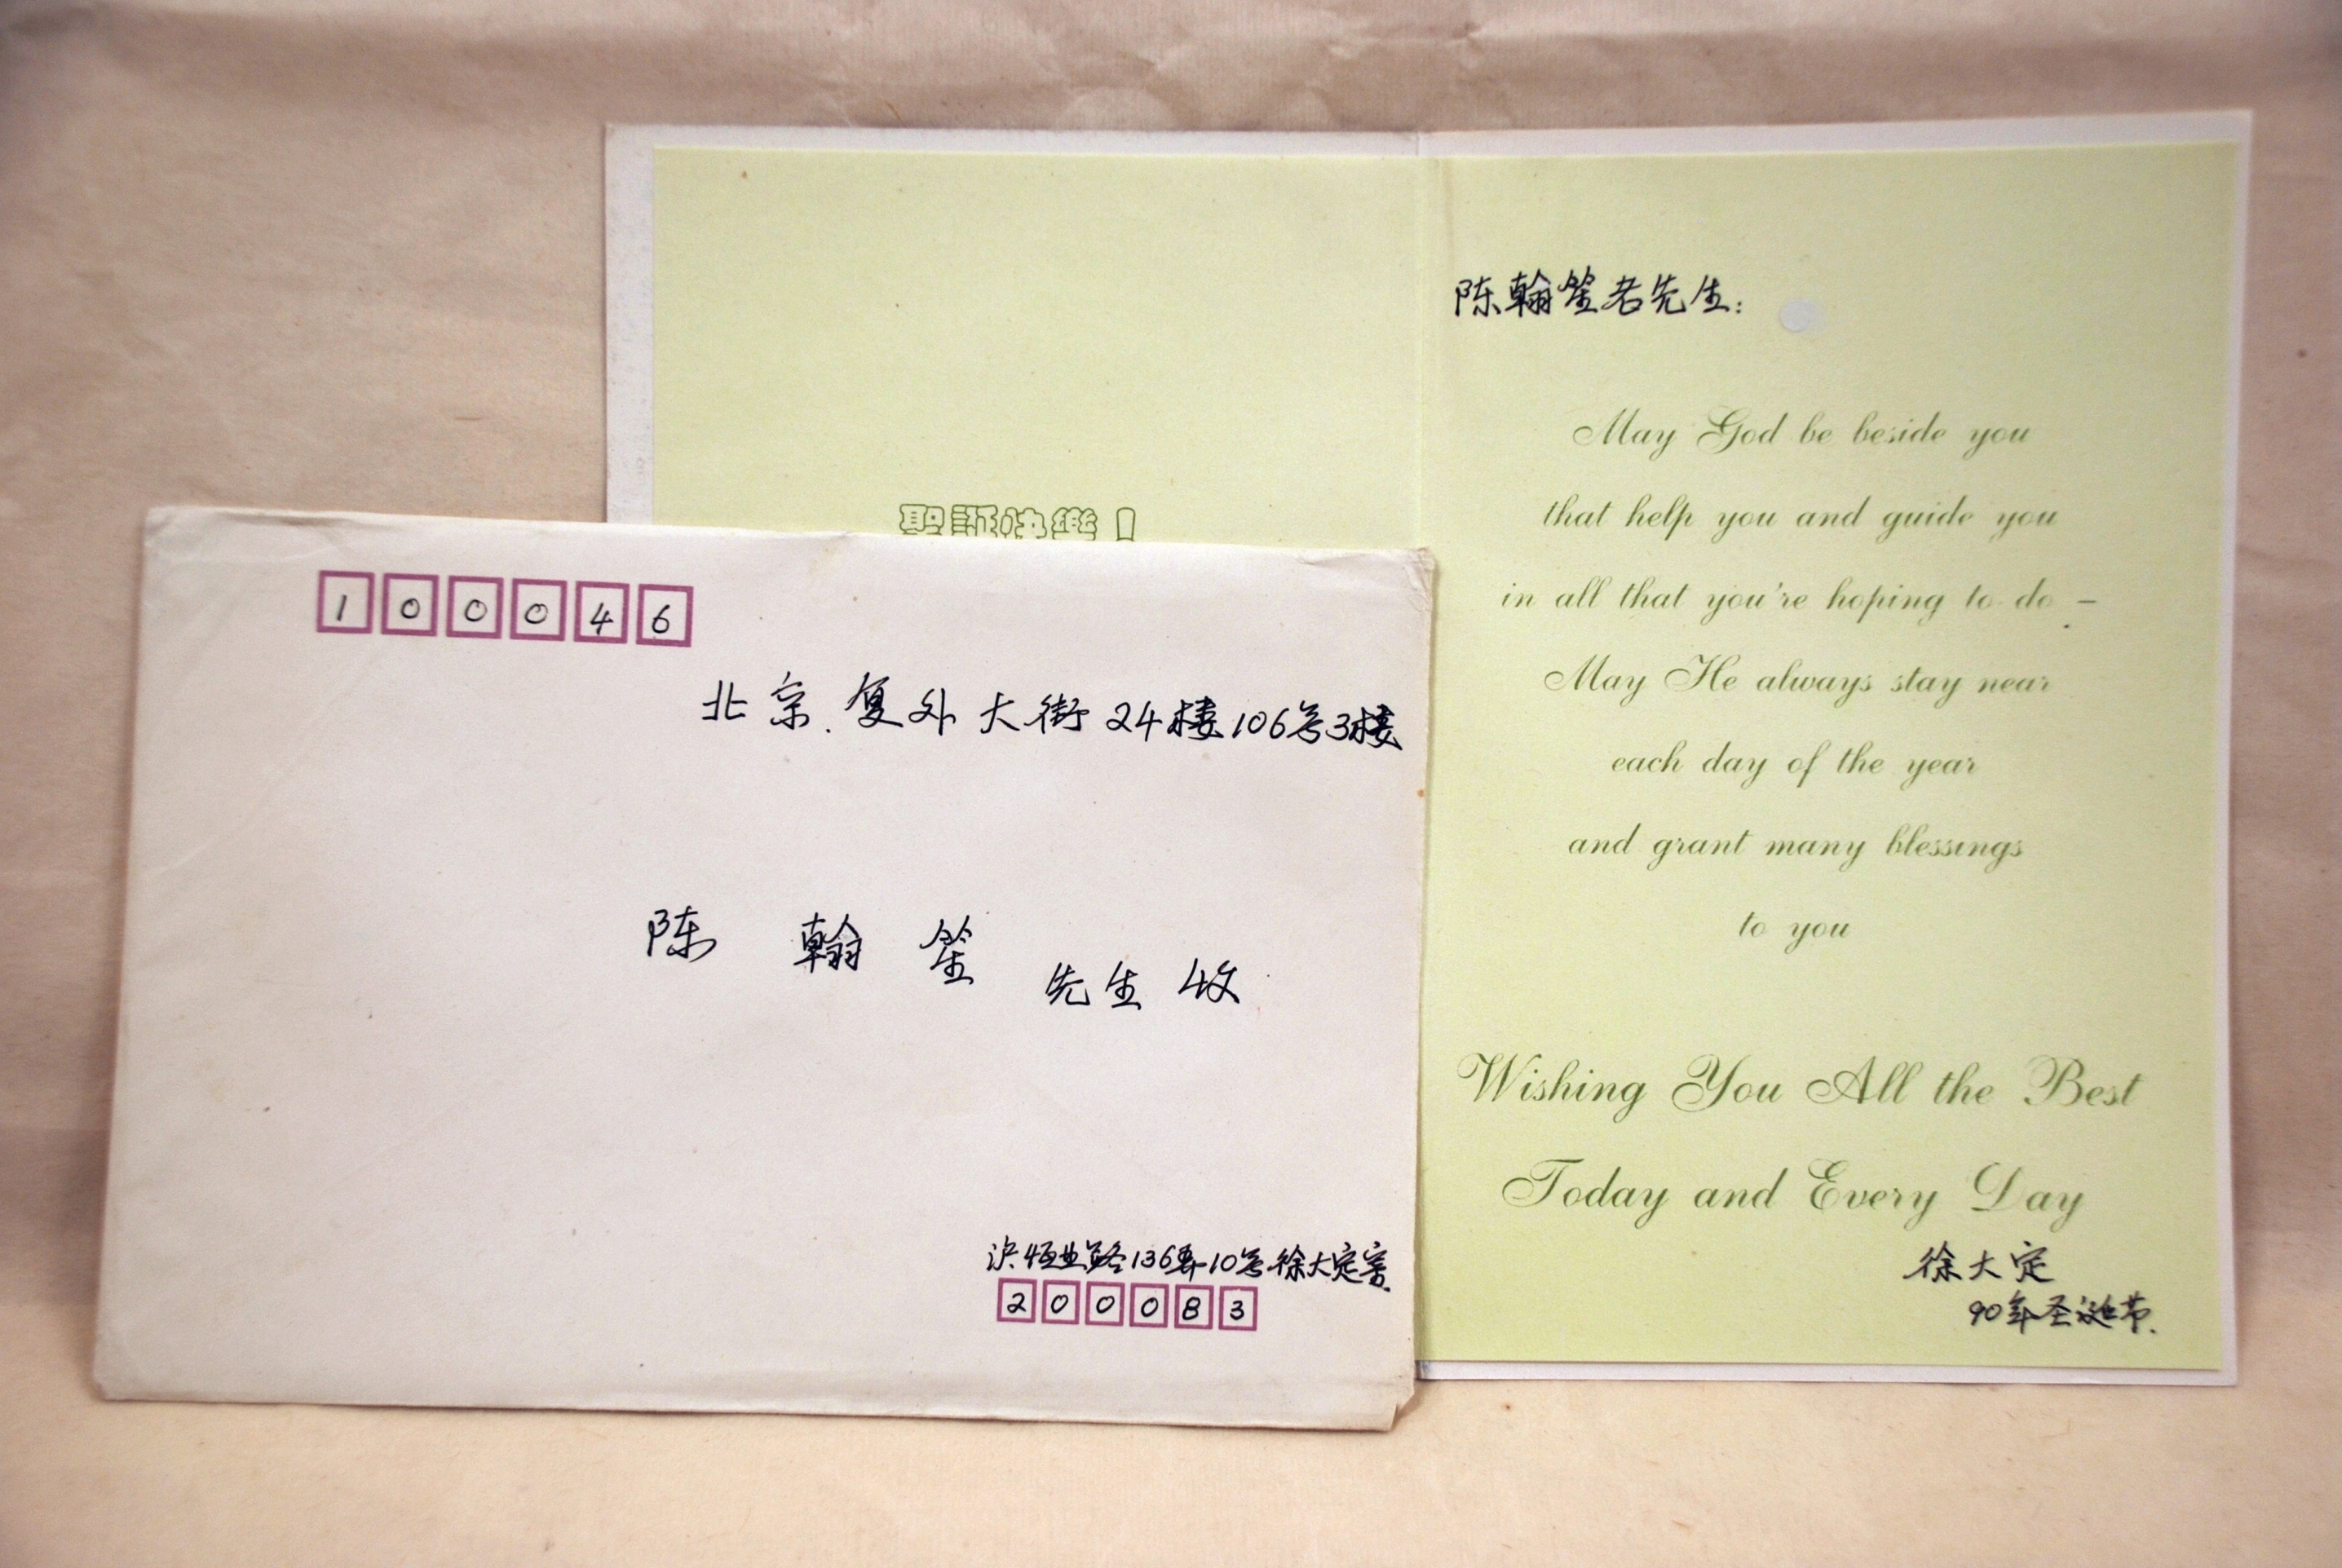 聖誕快樂！
陈翰笙老先生：
May God be beside you
that help you and guide you
in all that you're hoping to do –
May He always stay near
each day of the year
and grant many blessings
to you
Wishing You All the Best
Today and Every Day
徐大定
90年圣诞节.
100046
北京.复外大街24楼106号3楼
陈翰笙先生收
沪恒业路136弄10号徐大定寄
200083